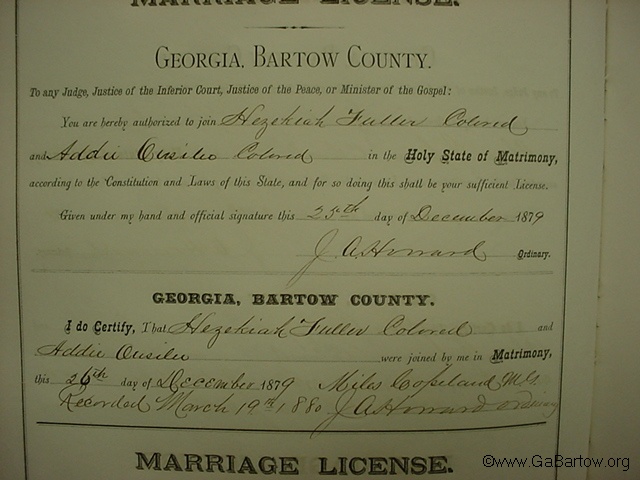 MARRIAGE LICENSE.
GEORGIA, BARTOW COUNTY.
To any Judge, Justice of the Inferior Court, Justice of the Peace, or Minister of the Gospel:
You are hereby authorized to join Hezekiah Fuller Colored
and Addie Colored in the Holy State of Matrimony,
according to the Constitution and Laws of this State, and for so doing this shall be your sufficient License.
Given under my hand and official signature this 25th day of December 1879
J A Howard Ordinary.
GEORGIA, BARTOW COUNTY.
I do Certify, That Hezekiah Fuller Colored and
Addie were joined by me in Matrimony,
this 26th day of December 1879 Miles Copeland M.G.
Recorded March 19th 1880 J A Howard Ordinary
MARRIAGE LICENSE.
©www.GaBartow.org